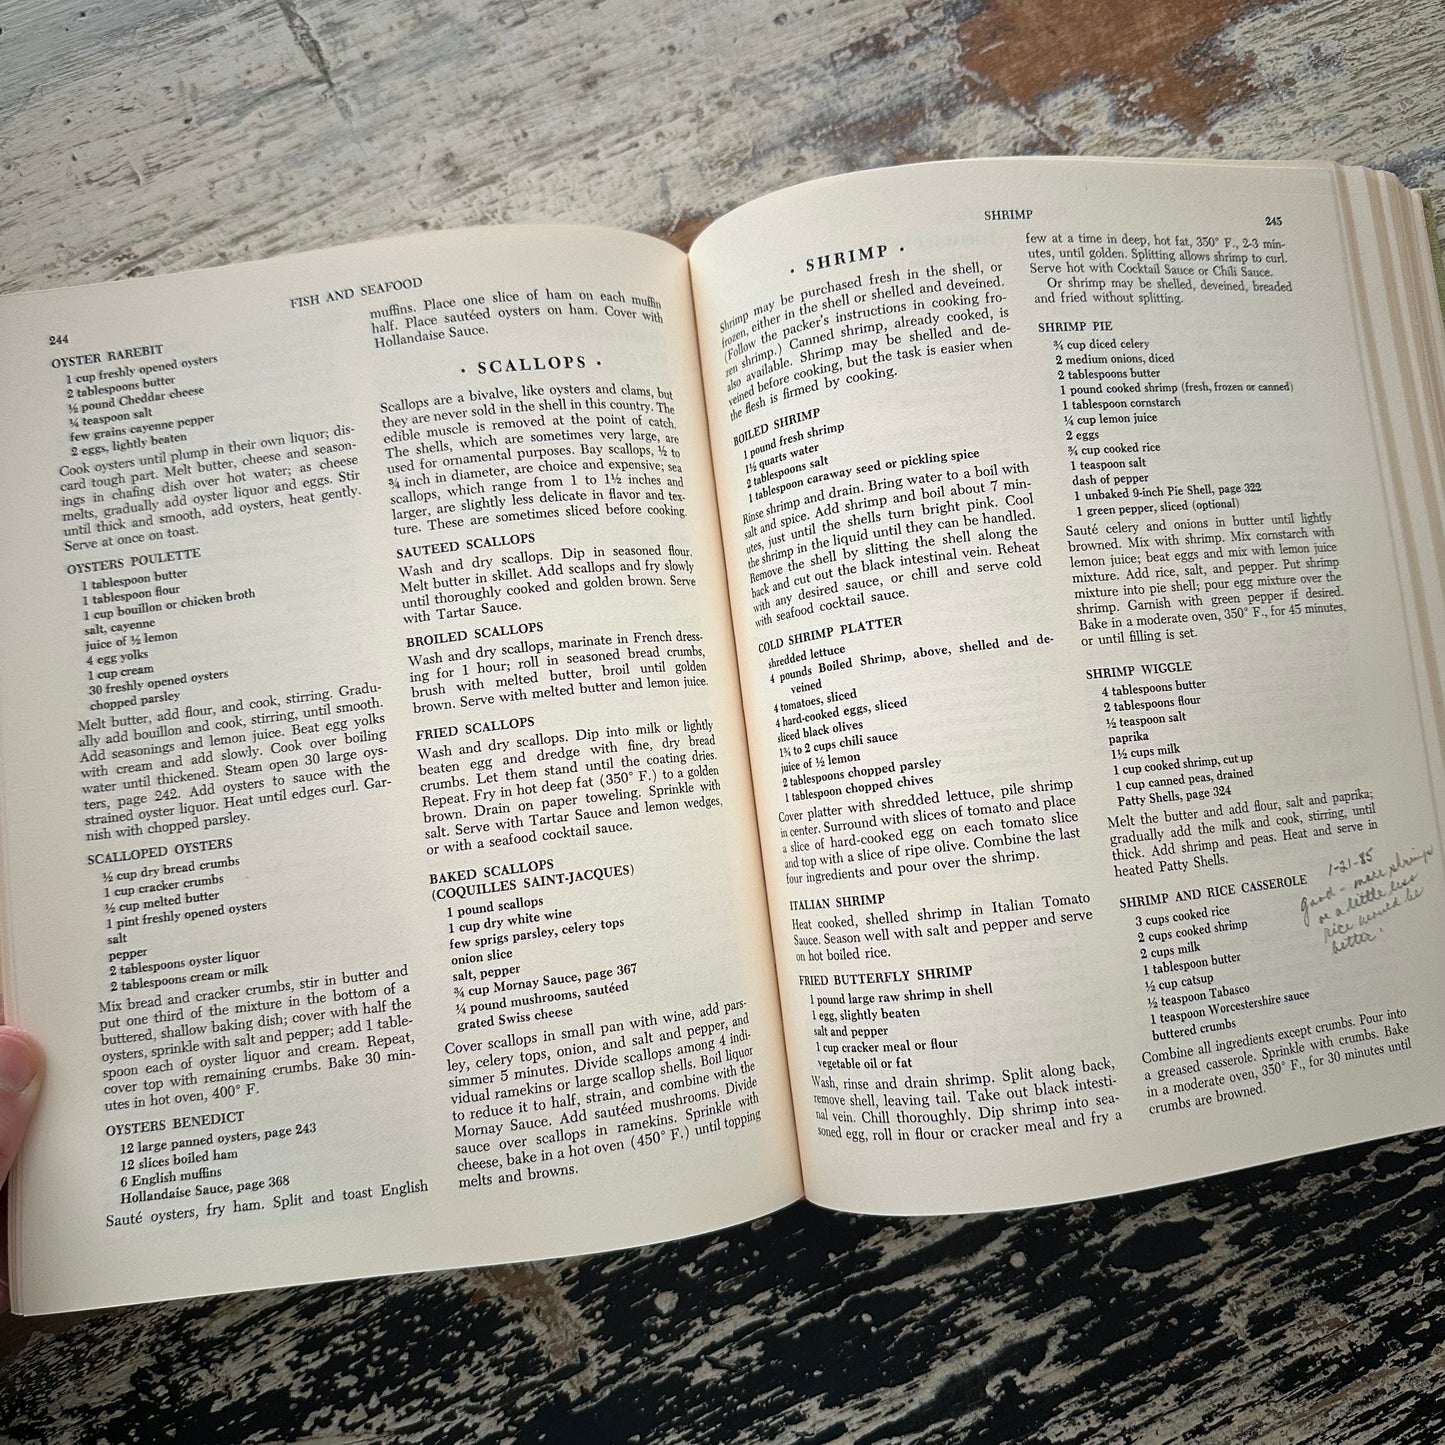 244
FISH AND SEAFOOD
OYSTER RAREBIT
1 cup freshly opened oysters
2 tablespoons butter
½ pound Cheddar cheese
¼ teaspoon salt
few grains cayenne pepper
2 eggs, lightly beaten
Cook oysters until plump in their own liquor; dis-
card tough part. Melt butter, cheese and season-
ings in chafing dish over hot water; as cheese
melts, gradually add oyster liquor and eggs. Stir
until thick and smooth, add oysters, heat gently.
Serve at once on toast.
OYSTERS POULETTE
1 tablespoon butter
1 tablespoon flour
1 cup bouillon or chicken broth
salt, cayenne
juice of ½ lemon
4 egg yolks
1 cup cream
30 freshly opened oysters
chopped parsley
Melt butter, add flour, and cook, stirring. Gradu-
ally add bouillon and cook, stirring, until smooth.
Add seasonings and lemon juice. Beat egg yolks
with cream and add slowly. Cook over boiling
water until thickened. Steam open 30 large oys-
ters, page 242. Add oysters to sauce with the
strained oyster liquor. Heat until edges curl. Gar-
nish with chopped parsley.
SCALLOPED OYSTERS
½ cup dry bread crumbs
1 cup cracker crumbs
½ cup melted butter
1 pint freshly opened oysters
salt
pepper
2 tablespoons oyster liquor
2 tablespoons cream or milk
Mix bread and cracker crumbs, stir in butter and
put one third of the mixture in the bottom of a
buttered, shallow baking dish; cover with half the
oysters, sprinkle with salt and pepper; add 1 table-
spoon each of oyster liquor and cream. Repeat,
cover top with remaining crumbs. Bake 30 min-
utes in hot oven, 400° F.
OYSTERS BENEDICT
12 large panned oysters, page 243
12 slices boiled ham
6 English muffins
Hollandaise Sauce, page 368
Sauté oysters, fry ham. Split and toast English
muffins. Place one slice of ham on each muffin
half. Place sautéed oysters on ham. Cover with
Hollandaise Sauce.
· SCALLOPS ·
Scallops are a bivalve, like oysters and clams, but
they are never sold in the shell in this country. The
edible muscle is removed at the point of catch.
The shells, which are sometimes very large, are
used for ornamental purposes. Bay scallops, ½ to
¾ inch in diameter, are choice and expensive; sea
scallops, which range from 1 to 1½ inches and
larger, are slightly less delicate in flavor and tex-
ture. These are sometimes sliced before cooking.
SAUTEED SCALLOPS
Wash and dry scallops. Dip in seasoned flour.
Melt butter in skillet. Add scallops and fry slowly
until thoroughly cooked and golden brown. Serve
with Tartar Sauce.
BROILED SCALLOPS
Wash and dry scallops, marinate in French dress-
ing for 1 hour; roll in seasoned bread crumbs,
brush with melted butter, broil until golden
brown. Serve with melted butter and lemon juice.
FRIED SCALLOPS
Wash and dry scallops. Dip into milk or lightly
beaten egg and dredge with fine, dry bread
crumbs. Let them stand until the coating dries.
Repeat. Fry in hot deep fat (350° F.) to a golden
brown. Drain on paper toweling. Sprinkle with
salt. Serve with Tartar Sauce and lemon wedges,
or with a seafood cocktail sauce.
BAKED SCALLOPS
(COQUILLES SAINT-JACQUES)
1 pound scallops
1 cup dry white wine
few sprigs parsley, celery tops
onion slice
salt, pepper
¾ cup Mornay Sauce, page 367
¼ pound mushrooms, sautéed
grated Swiss cheese
Cover scallops in small pan with wine, add pars-
ley, celery tops, onion, and salt and pepper, and
simmer 5 minutes. Divide scallops among 4 indi-
vidual ramekins or large scallop shells. Boil liquor
to reduce it to half, strain, and combine with the
Mornay Sauce. Add sautéed mushrooms. Divide
sauce over scallops in ramekins. Sprinkle with
cheese, bake in a hot oven (450° F.) until topping
melts and browns.
SHRIMP
245
· SHRIMP ·
Shrimp may be purchased fresh in the shell, or
frozen, either in the shell or shelled and deveined.
(Follow the packer's instructions in cooking fro-
zen shrimp.) Canned shrimp, already cooked, is
also available. Shrimp may be shelled and de-
veined before cooking, but the task is easier when
the flesh is firmed by cooking.
BOILED SHRIMP
1 pound fresh shrimp
1½ quarts water
2 tablespoons salt
1 tablespoon caraway seed or pickling spice
Rinse shrimp and drain. Bring water to a boil with
salt and spice. Add shrimp and boil about 7 min-
utes, just until the shells turn bright pink. Cool
the shrimp in the liquid until they can be handled.
Remove the shell by slitting the shell along the
back and cut out the black intestinal vein. Reheat
with any desired sauce, or chill and serve cold
with seafood cocktail sauce.
COLD SHRIMP PLATTER
shredded lettuce
4 pounds Boiled Shrimp, above, shelled and de-
veined
4 tomatoes, sliced
4 hard-cooked eggs, sliced
sliced black olives
1¾ to 2 cups chili sauce
juice of ½ lemon
2 tablespoons chopped parsley
1 tablespoon chopped chives
Cover platter with shredded lettuce, pile shrimp
in center. Surround with slices of tomato and place
a slice of hard-cooked egg on each tomato slice
and top with a slice of ripe olive. Combine the last
four ingredients and pour over the shrimp.
ITALIAN SHRIMP
Heat cooked, shelled shrimp in Italian Tomato
Sauce. Season well with salt and pepper and serve
on hot boiled rice.
FRIED BUTTERFLY SHRIMP
1 pound large raw shrimp in shell
1 egg, slightly beaten
salt and pepper
1 cup cracker meal or flour
vegetable oil or fat
Wash, rinse and drain shrimp. Split along back,
remove shell, leaving tail. Take out black intesti-
nal vein. Chill thoroughly. Dip shrimp into sea-
soned egg, roll in flour or cracker meal and fry a
few at a time in deep, hot fat, 350° F., 2-3 min-
utes, until golden. Splitting allows shrimp to curl.
Serve hot with Cocktail Sauce or Chili Sauce.
Or shrimp may be shelled, deveined, breaded
and fried without splitting.
SHRIMP PIE
¾ cup diced celery
2 medium onions, diced
2 tablespoons butter
1 pound cooked shrimp (fresh, frozen or canned)
1 tablespoon cornstarch
¼ cup lemon juice
2 eggs
¾ cup cooked rice
1 teaspoon salt
dash of pepper
1 unbaked 9-inch Pie Shell, page 322
1 green pepper, sliced (optional)
Sauté celery and onions in butter until lightly
browned. Mix with shrimp. Mix cornstarch with
lemon juice; beat eggs and mix with lemon juice
mixture. Add rice, salt, and pepper. Put shrimp
mixture into pie shell; pour egg mixture over the
shrimp. Garnish with green pepper if desired.
Bake in a moderate oven, 350° F., for 45 minutes,
or until filling is set.
SHRIMP WIGGLE
4 tablespoons butter
2 tablespoons flour
½ teaspoon salt
paprika
1½ cups milk
1 cup cooked shrimp, cut up
1 cup canned peas, drained
Patty Shells, page 324
Melt the butter and add flour, salt and paprika;
gradually add the milk and cook, stirring, until
thick. Add shrimp and peas. Heat and serve in
heated Patty Shells.
SHRIMP AND RICE CASSEROLE
3 cups cooked rice
2 cups cooked shrimp
2 cups milk
1 tablespoon butter
½ cup catsup
½ teaspoon Tabasco
1 teaspoon Worcestershire sauce
buttered crumbs
Combine all ingredients except crumbs. Pour into
a greased casserole. Sprinkle with crumbs. Bake
in a moderate oven, 350° F., for 30 minutes until
crumbs are browned.
1-21-85
good - more shrimp
or a little less
rice would be
better!